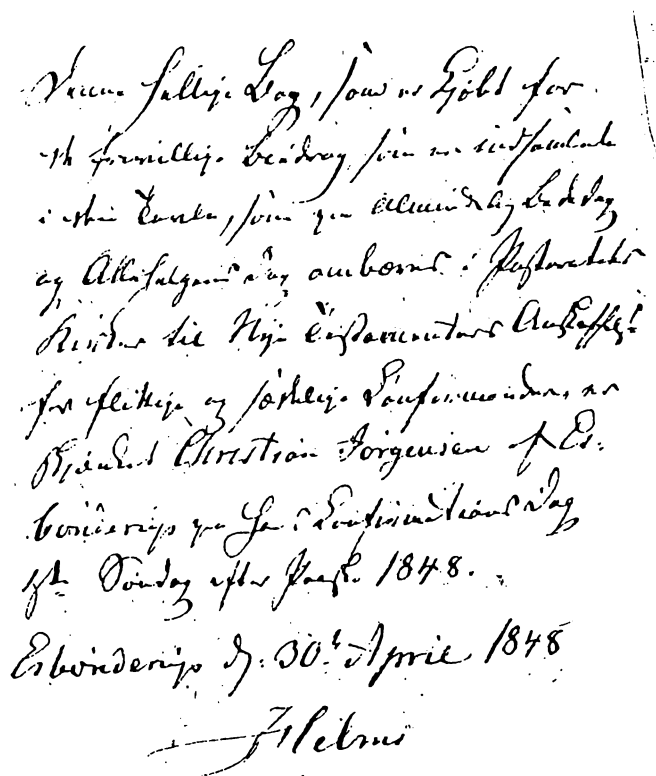 Denne hellige Bog, som er kjøbt for
et frivillige Bidrag som er indsamlede
i den Tavle, som paa Almindelig Bededag
og Allehelgens Dag ombæres i Pastoratets
Kirker til Nye Testamenters Anskaffelse
for flittige og sædelige Confirmander, er
skjænket Christian Jørgensen af Es-
bønderup paa hans Confirmations Dag
Søndag efter Paaske 1848.
Esbønderup d. 30te April 1848